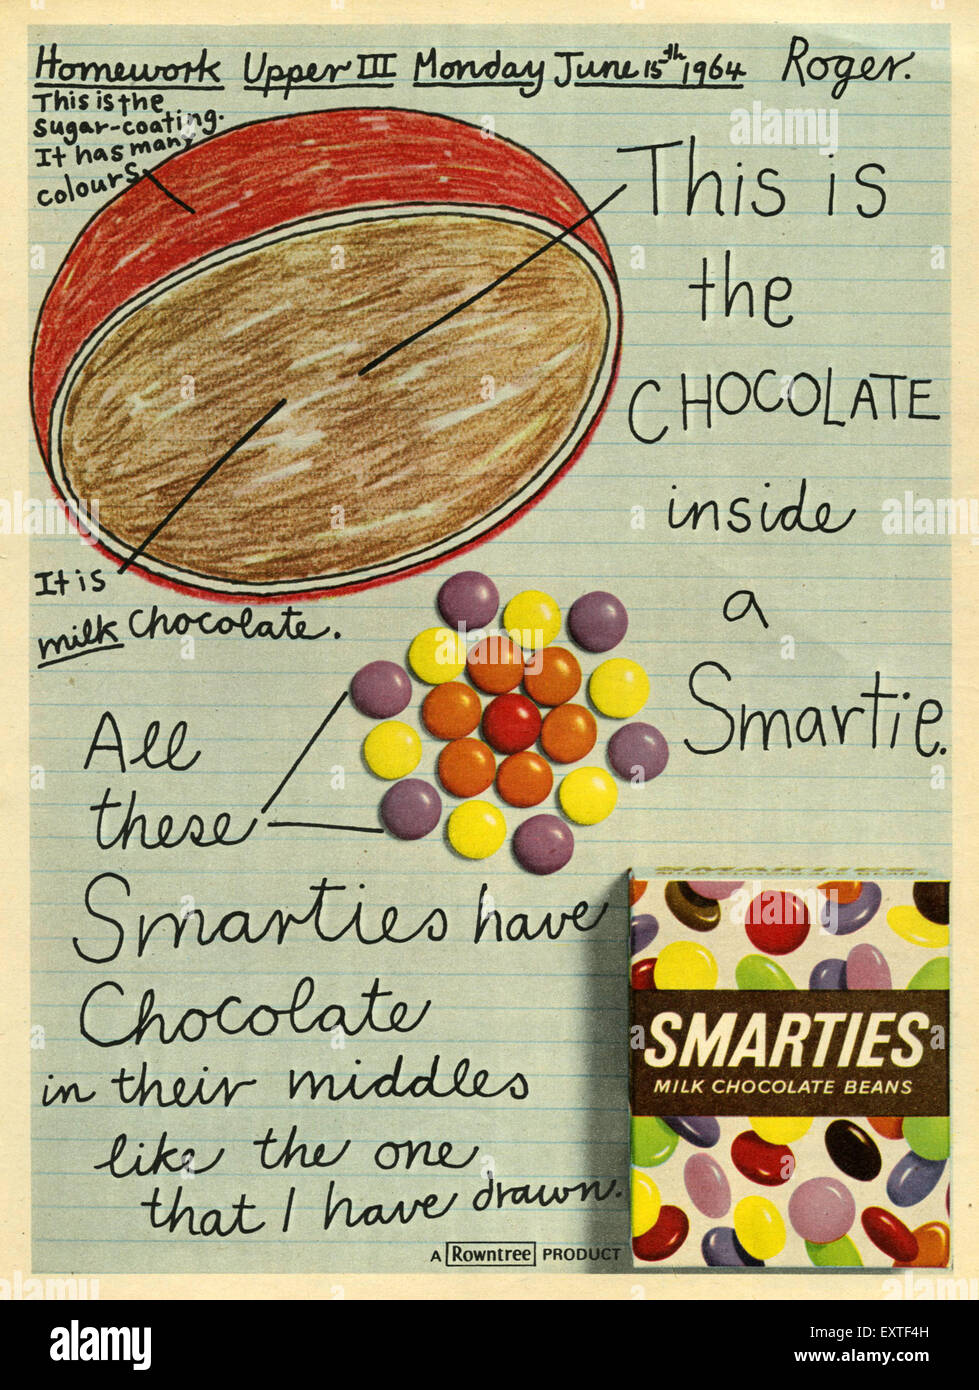 Homework Upper III Monday June 15th 1964 Roger.
This is the
sugar-coating.
It has many
colours.
This is
the
CHOCOLATE
inside
a
Smartie.
It is
milk chocolate.
All
these
Smarties have
Chocolate
in their middles
like the one
that I have drawn.
SMARTIES
SMARTIES
MILK CHOCOLATE BEANS
A Rowntree PRODUCT
alamy stock photo
EXTF4H
www.alamy.com